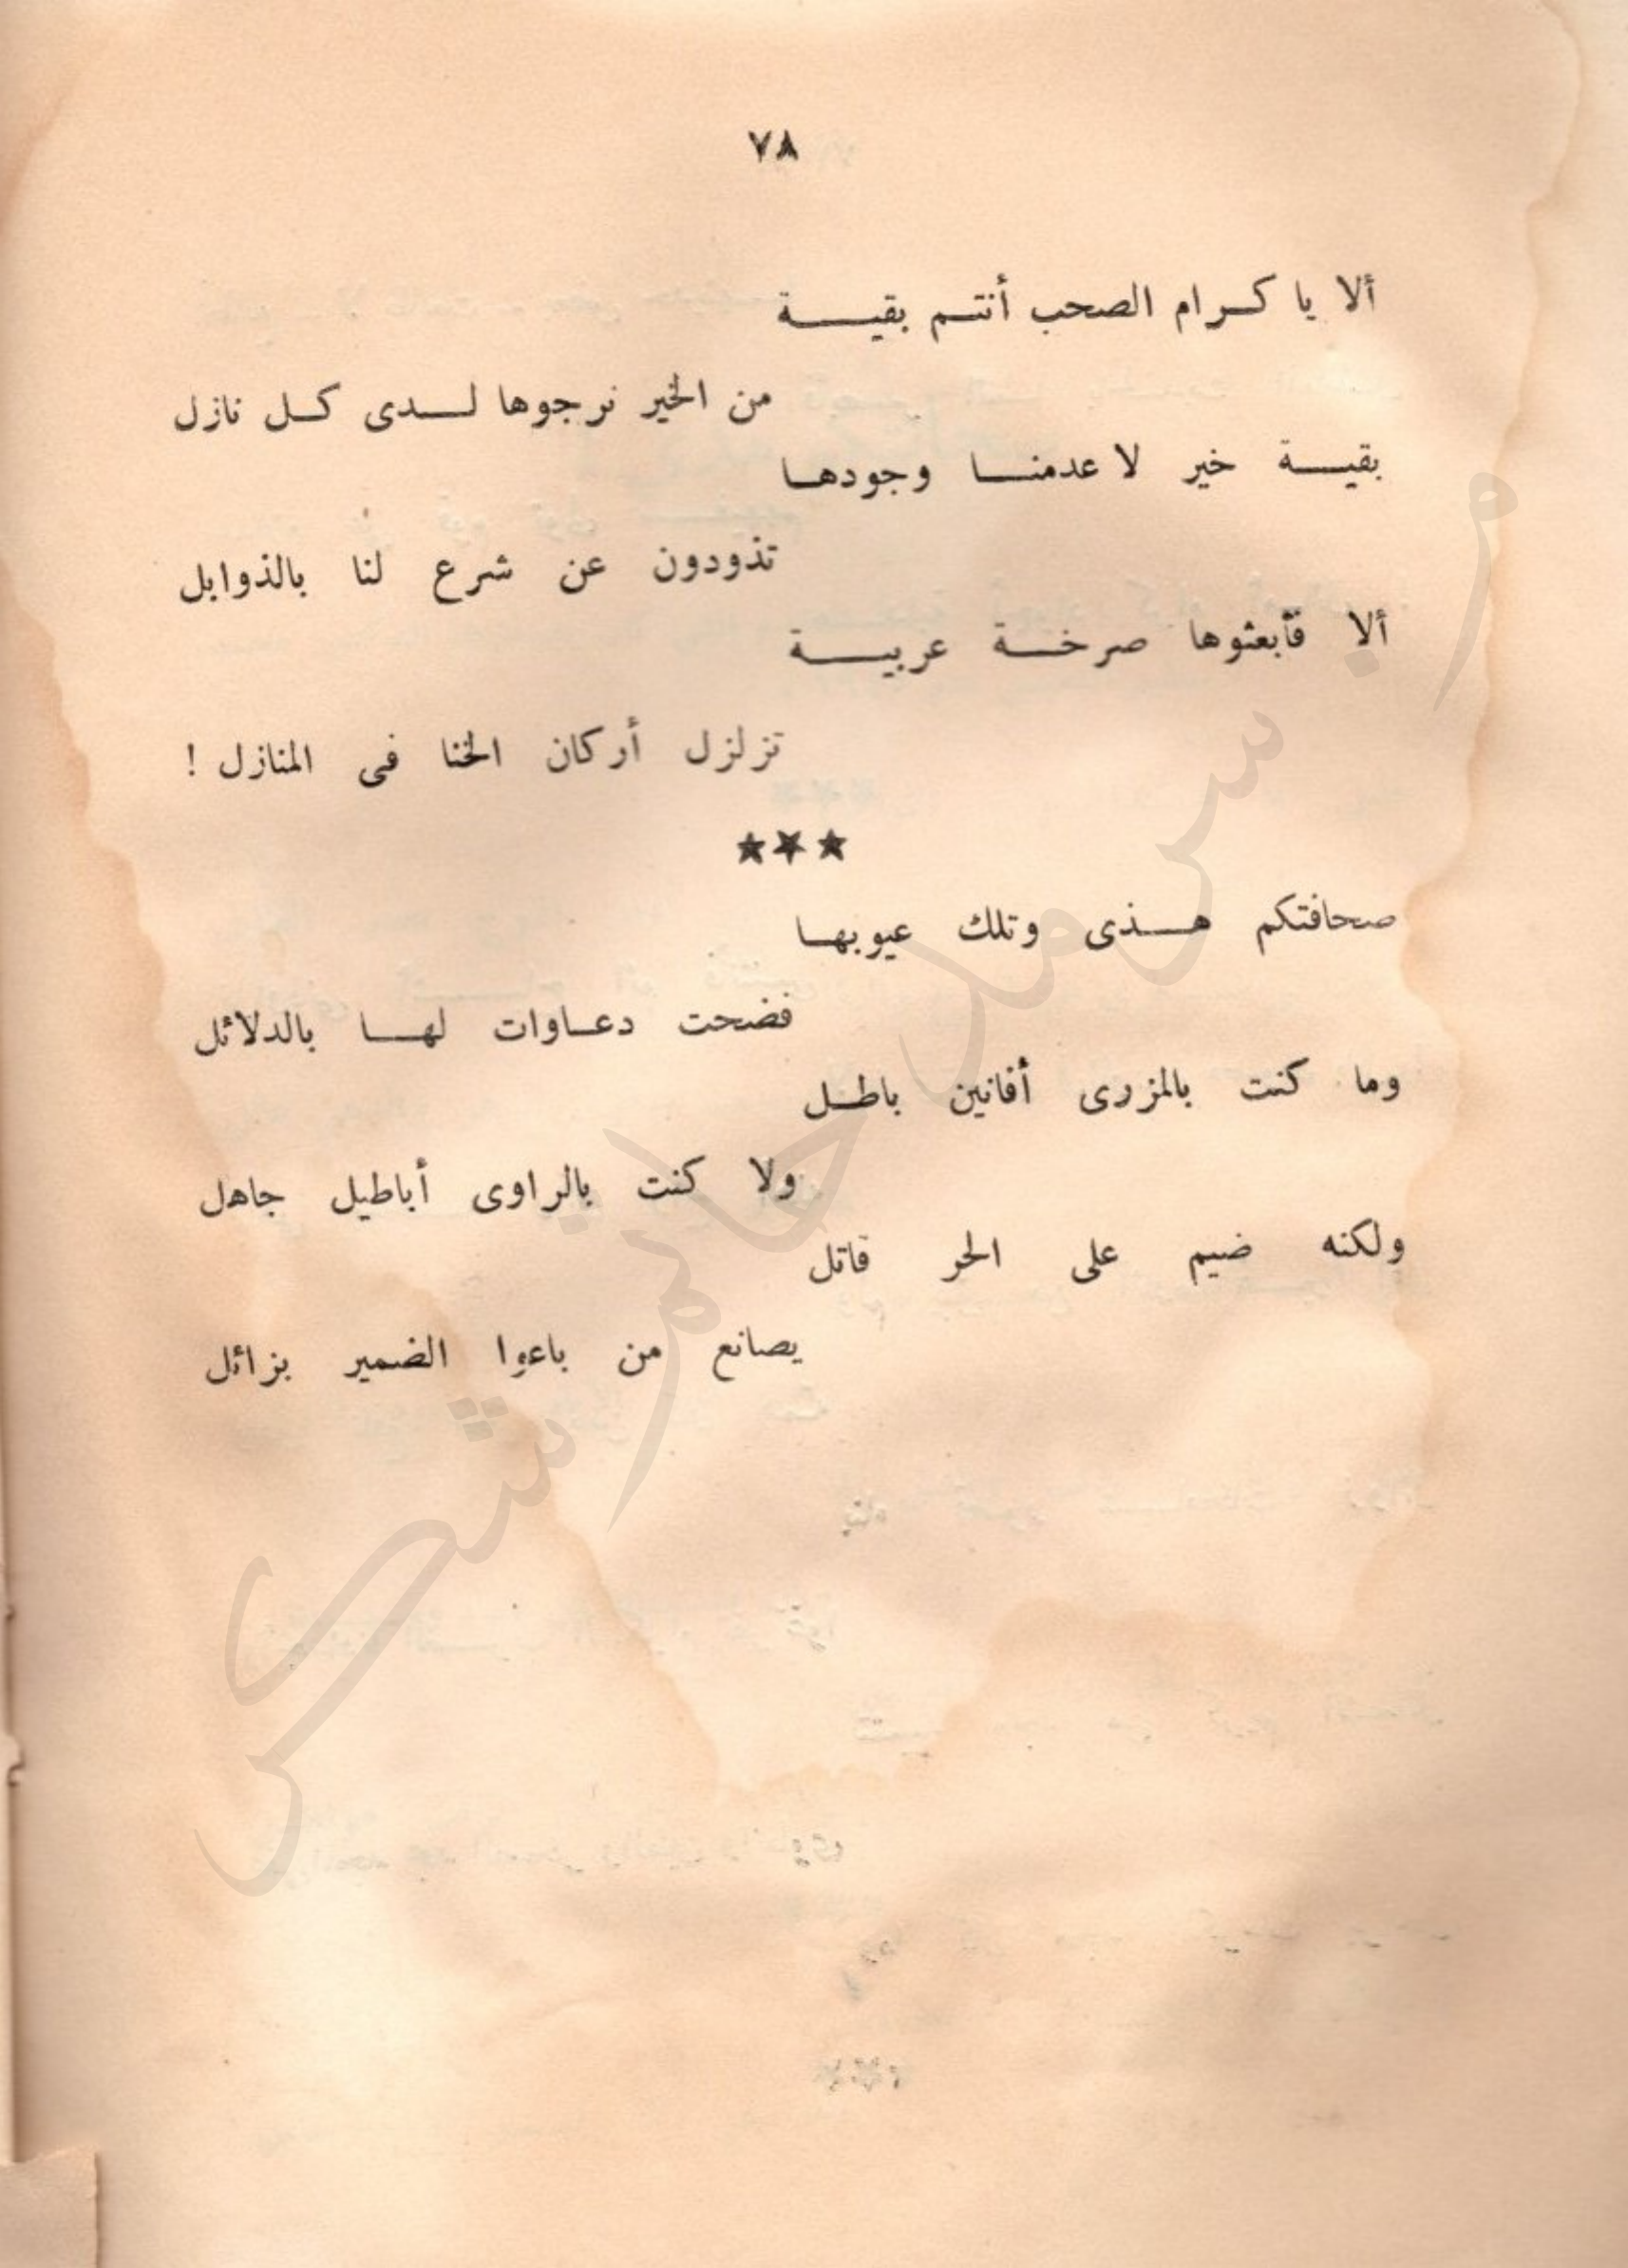 ٧٨
ألا يا كرام الصحب أنتم بقية
من الخير نرجوها لدى كل نازل
بقية خير لا عدمنا وجودها
تذودون عن شرع لنا بالذوابل
ألا فأبعثوها صرخة عربية
تزلزل أركان الخنا فى المنازل !
★★★
صحافتكم هذى وتلك عيوبها
فضحت دعاوات لها بالدلائل
وما كنت بالمزرى أفانين باطل
ولا كنت بالراوى أباطيل جاهل
ولكنه ضيم على الحر قاتل
يصانع من باعوا الضمير بزائل